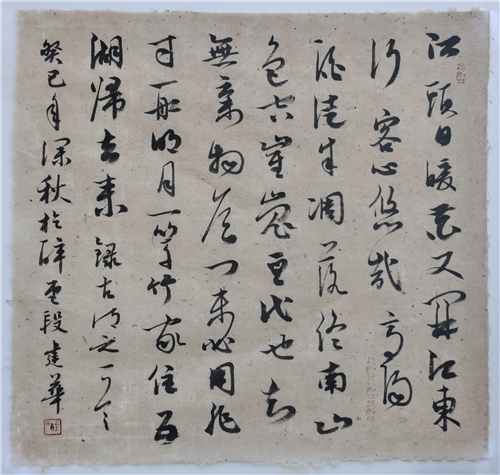 江頭日暖花又開江東
行客心悠哉高陽
酒徒半凋落終南山
色空崔嵬聖代也知
無棄物侯門未必用非
才一船明月一竿竹家住五
湖歸去來 錄古詩
癸巳年深秋於醉 段建華